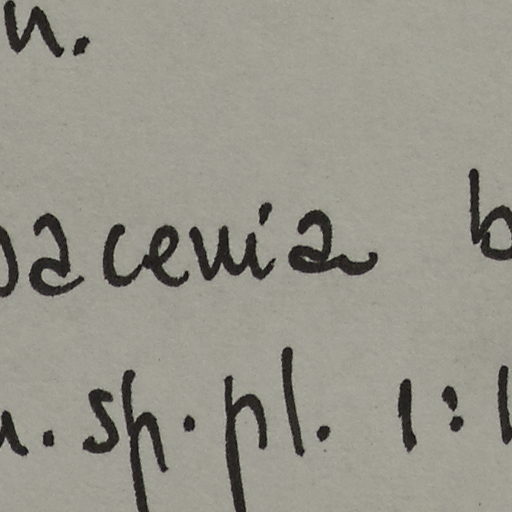 n.
pacenia b
n. sp. pl. 1:1